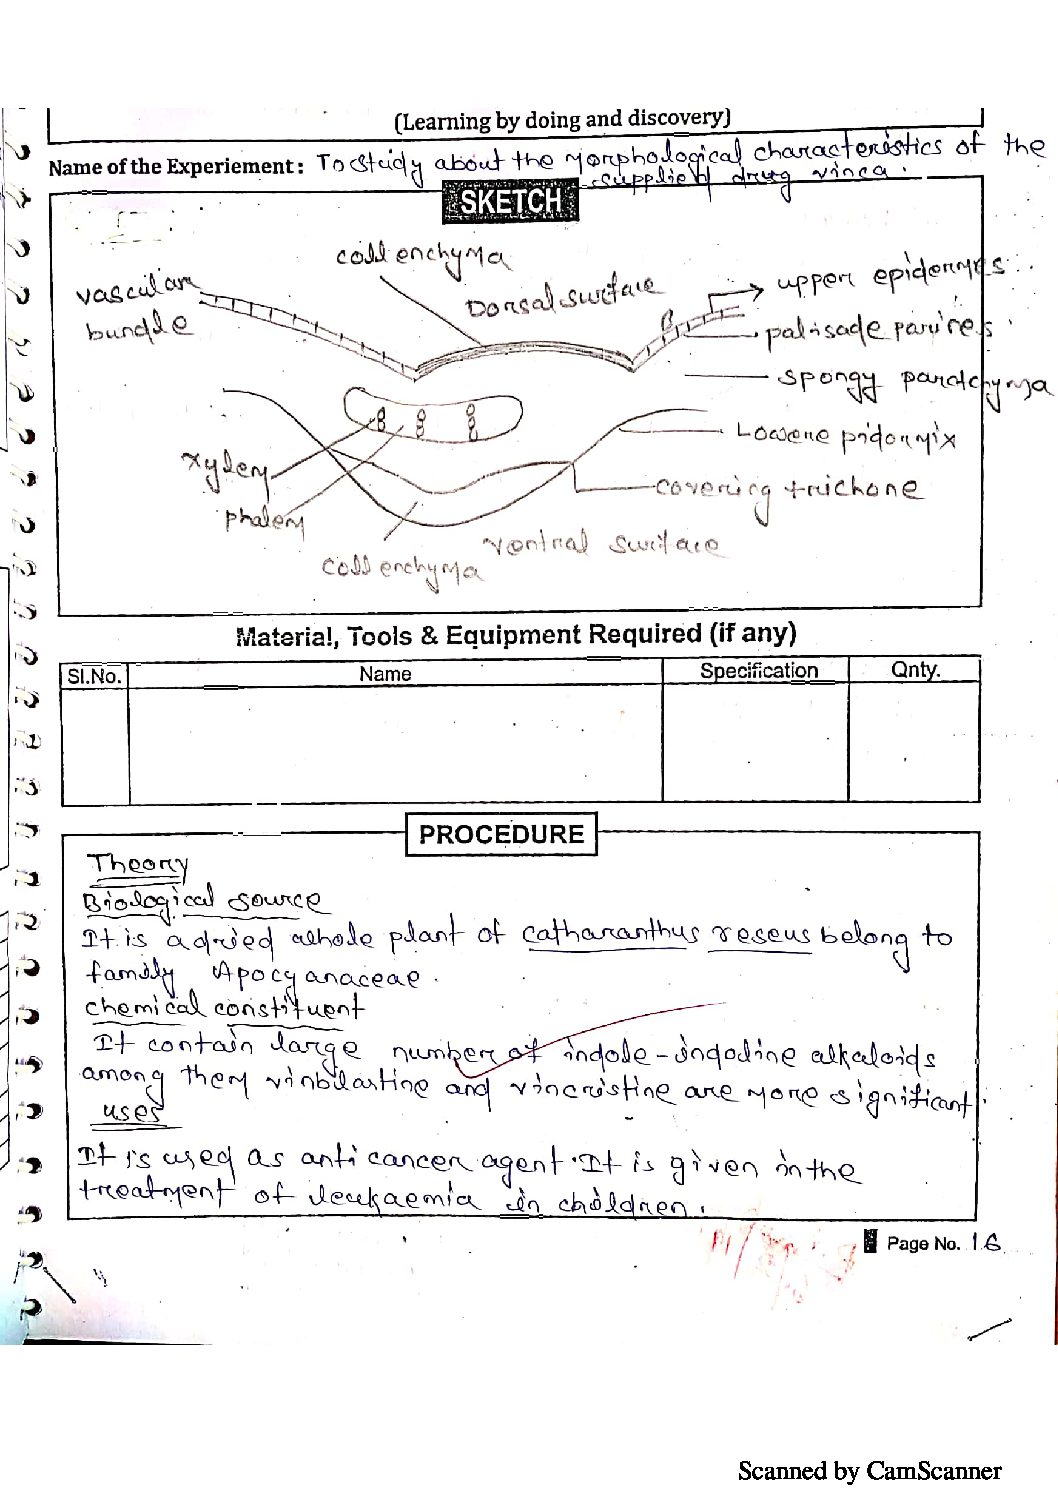 (Learning by doing and discovery)
Name of the Experiement : To study about the morphological characteristics of the
supplied drug vinca.
SKETCH
collenchyma
vascular
bundle
Dorsal surface
upper epidermis
palisade
spongy
Lower
xylem
covering trichone
phalem
ventral surface
collenchyma
Material, Tools & Equipment Required (if any)
Sl.No. Name Specification Qnty.
PROCEDURE
Theory
Biological source
It is a dried whole plant of catharanthus reseus belong to
family Apocyanaceae.
chemical constituent
It contain large number of indole-indoline alkaloids
among them vinblastine and vincristine are more significant.
uses
It is used as anti cancer agent. It is given in the
treatment of leukaemia in children.
Page No. 16
Scanned by CamScanner